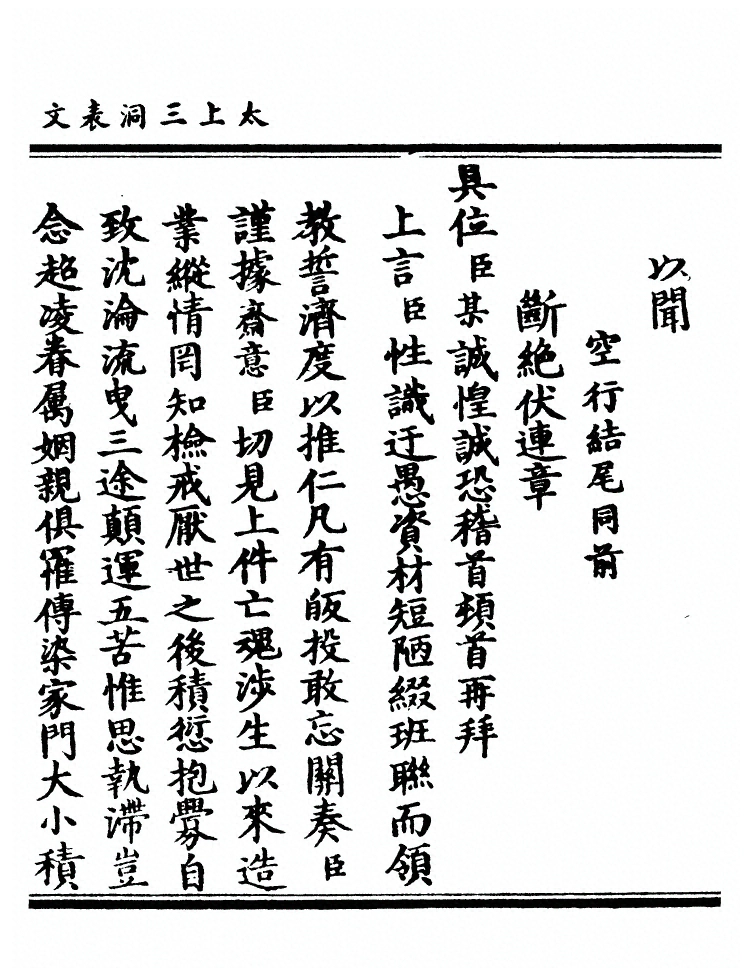 太上三洞表文
以聞
空行結尾同前
斷絶伏連章
具位臣某誠惶誠恐稽首頓首再拜
上言臣性識迂愚資材短陋綴班聯而領
教誓濟度以推仁凡有皈投敢忘關奏臣
謹據齋意臣切見上件亡魂涉生以來造
業縱情罔知檢戒厭世之後積愆抱釁自
致沈淪流曳三途顛運五苦惟思執滯豈
念超凌眷属姻親俱罹傳染家門大小積